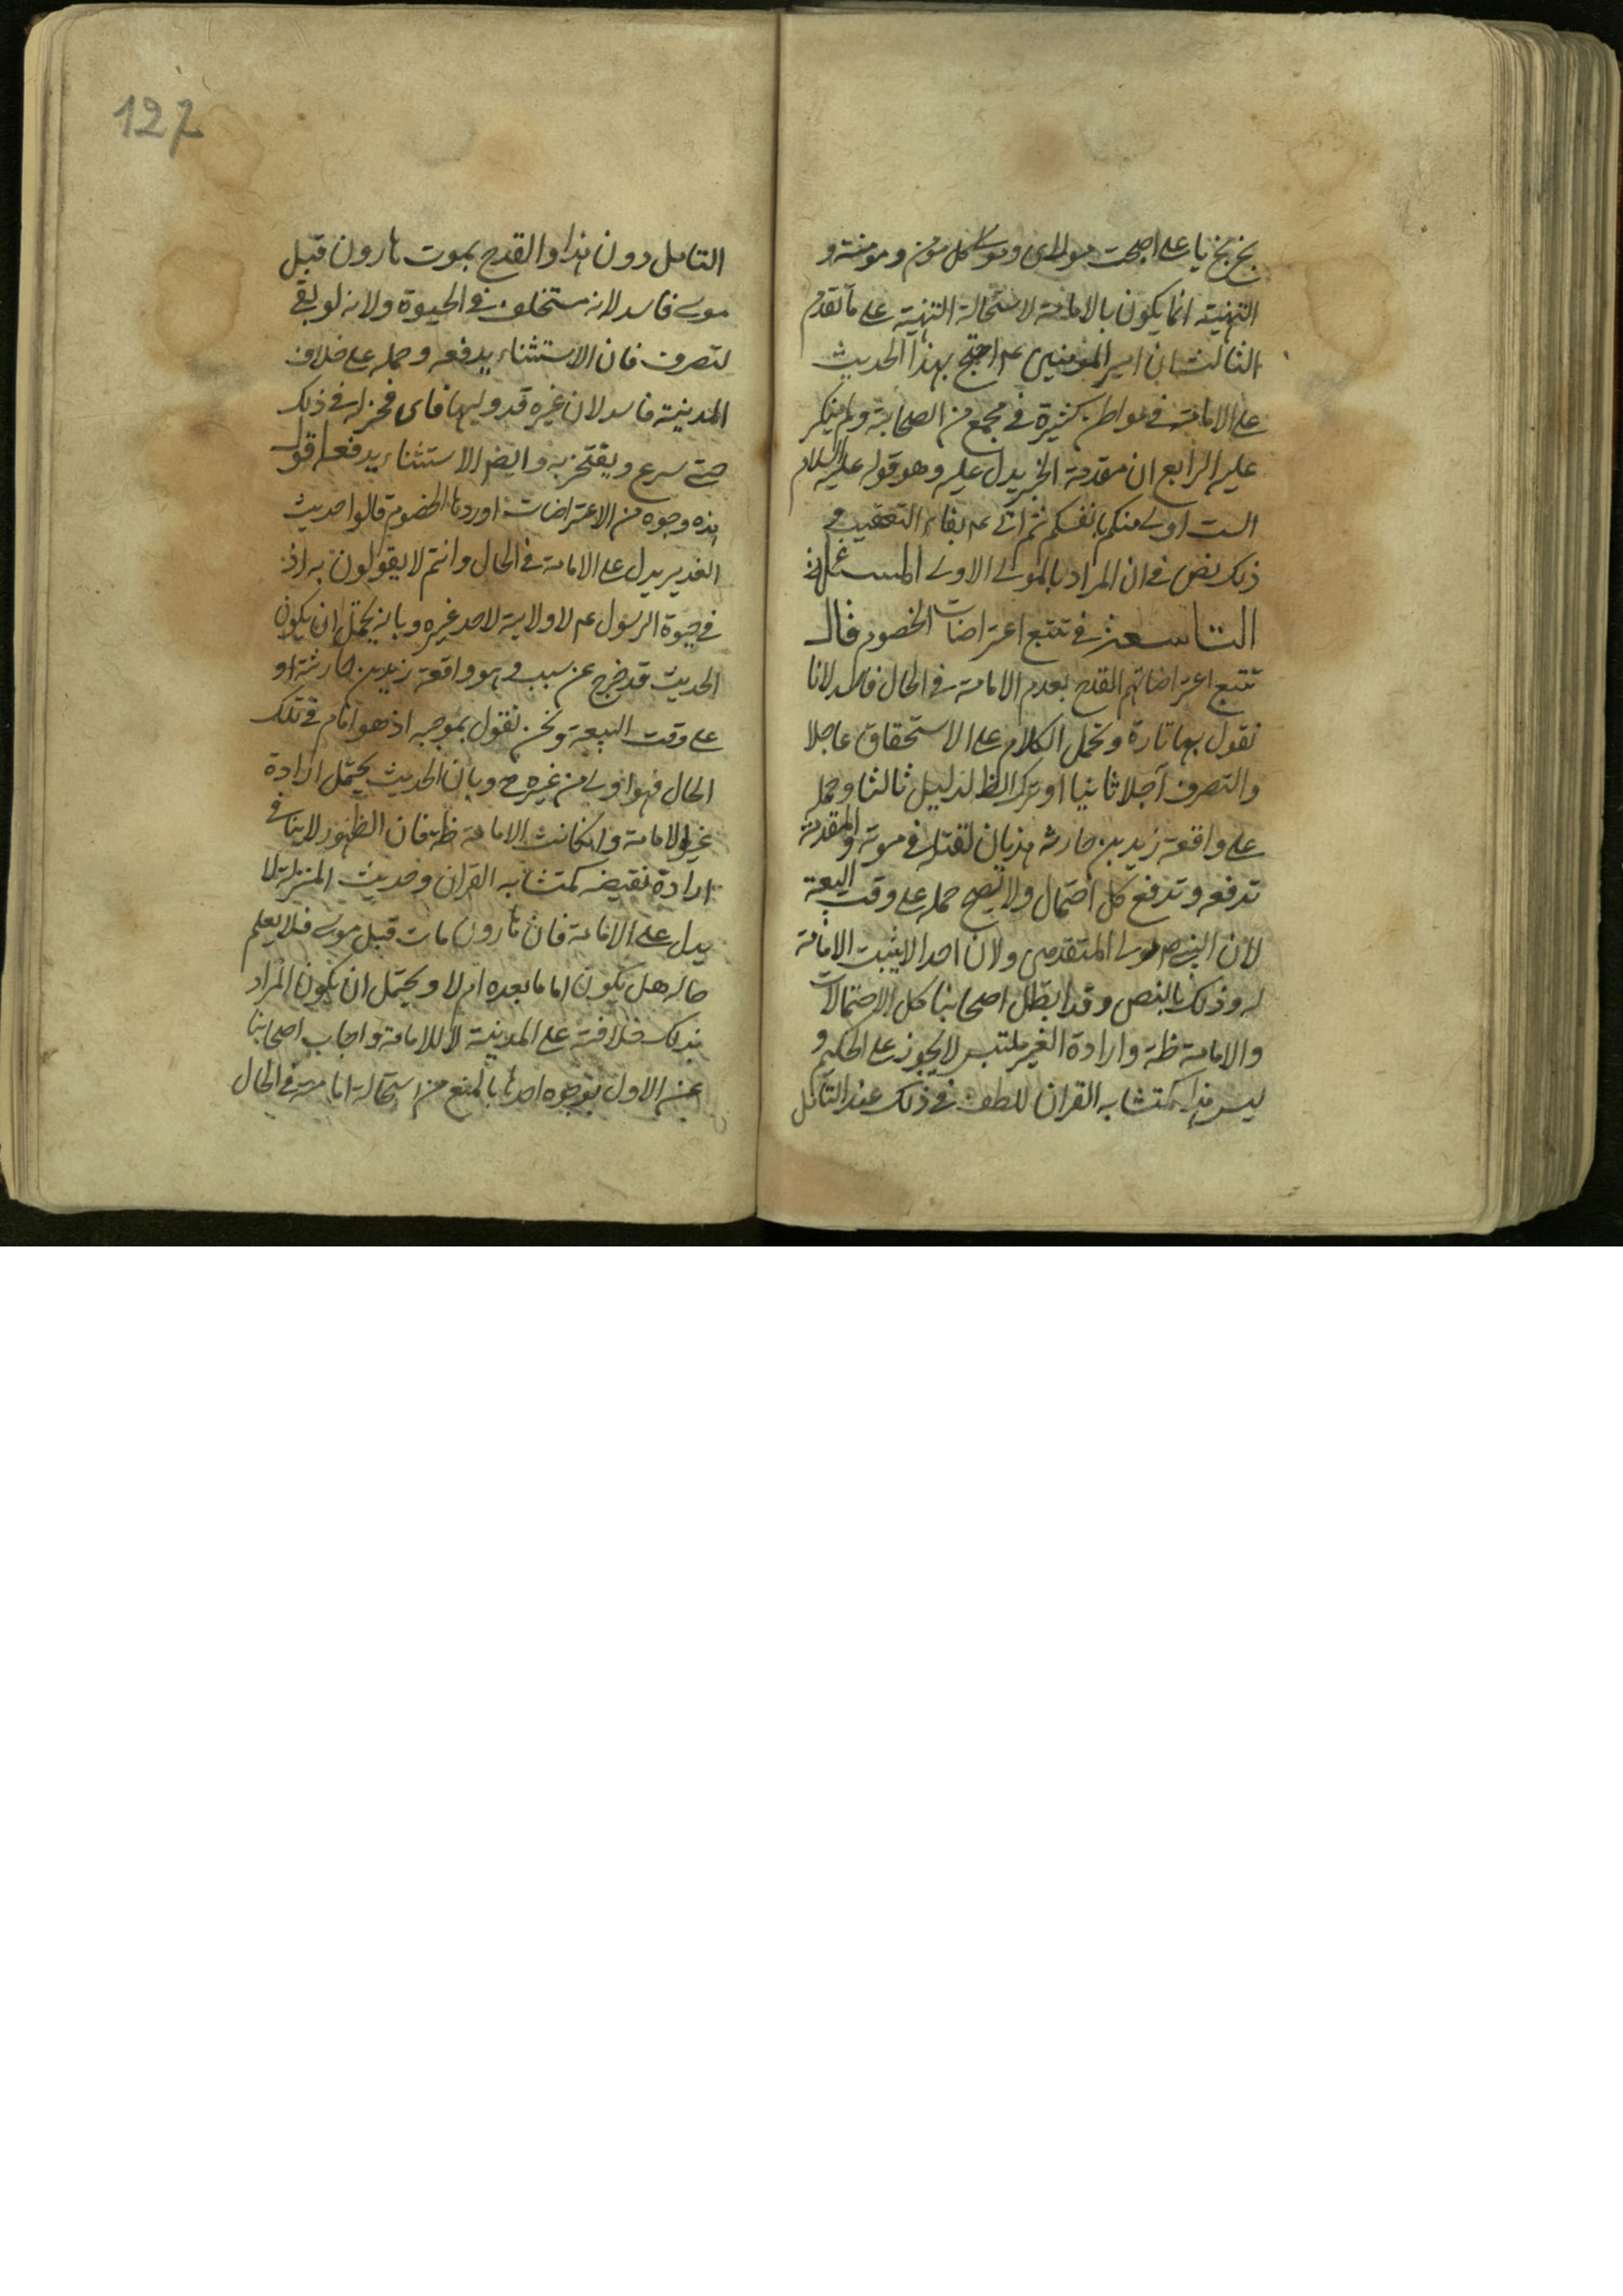 بخ بخ يا علي اصبحت مولاي ومولى كل مومن ومومنة و
التهنية انما يكون بالامامة لاستحالة التهنية على ما تقدم
الثالث ان امير المومنين عم احتج بهذا الحديث
على الامامة في مواطن كثيرة في مجمع من الصحابة ولم ينكر
عليه الرابع ان مقدمة الخبر يدل عليه وهو قوله عليه السلام
الست اولى منكم بانفسكم ثم اتى عم بفاء التعقيب و
ذلك نص في ان المراد بالمولى الاولى المسئلة
التاسعة في تتبع اعتراضات الخصوم قال
تتبع اعتراضاتهم القدح بعدم الامامة في الحال فاسد لانا
نقول بها تارة ونحمل الكلام على الاستحقاق عاجلا
والتصرف آجلا ثانيا او نترك الظ لدليل ثالثا وحمله
على واقعة زيد بن حارثه هذيان لقتله في موتة والمقدمة
تدفعه وتدفع كل احتمال ولا يصح حمله على وقت البيعة
لان النبي ص مولى المتقدمين ولان احدا لا يثبت الامامة
له وذلك بالنص وقد ابطل اصحابنا كل الاحتمالات
والامامة ظة وارادة الغير ملتبس لا يجوز على الحكيم و
ليس هذا كمتشابه القران للطف في ذلك عند التامل
127
التامل دون هذا والقدح بموت هارون قبل
موسى فاسد لانه مستخلف في الحيوة ولانه لو بقي
لتصرف فان الاستثناء يدفعه وحمله على خلافة
المدينة فاسد لان غيره قد وليها فاى فخر له في ذلك
حتى يسرع ويفتخر به وايضا الاستثناء يدفعه اقول
هذه وجوه من الاعتراضات اوردها الخصوم قالوا حديث
الغدير يدل على الامامة في الحال وانتم لا يقولون به اذ
في حيوة الرسول عم لا ولاية لاحد غيره وبانه يحتمل ان يكون
الحديث قد خرج عن سبب وهو واقعة زيد بن حارثة او
على وقت البيعة ونحن نقول بموجبه اذ هو امام في تلك
الحال فهو اولى من غيره ح وبان الحديث يحتمل ارادة
غير الامامة وان كانت الامامة ظة فان الظهور لا ينافي
ارادة نقيضه كمتشابه القران وحديث المنزلة لا
يدل على الامامة فان هارون مات قبل موسى فلا يعلم
حاله هل يكون اماما بعده ام لا ويحتمل ان يكون المراد
بذلك خلافته على المدينة لا للامامة واجاب اصحابنا
عن الاول بوجوه احدها بالمنع من استحالة امامته في الحال